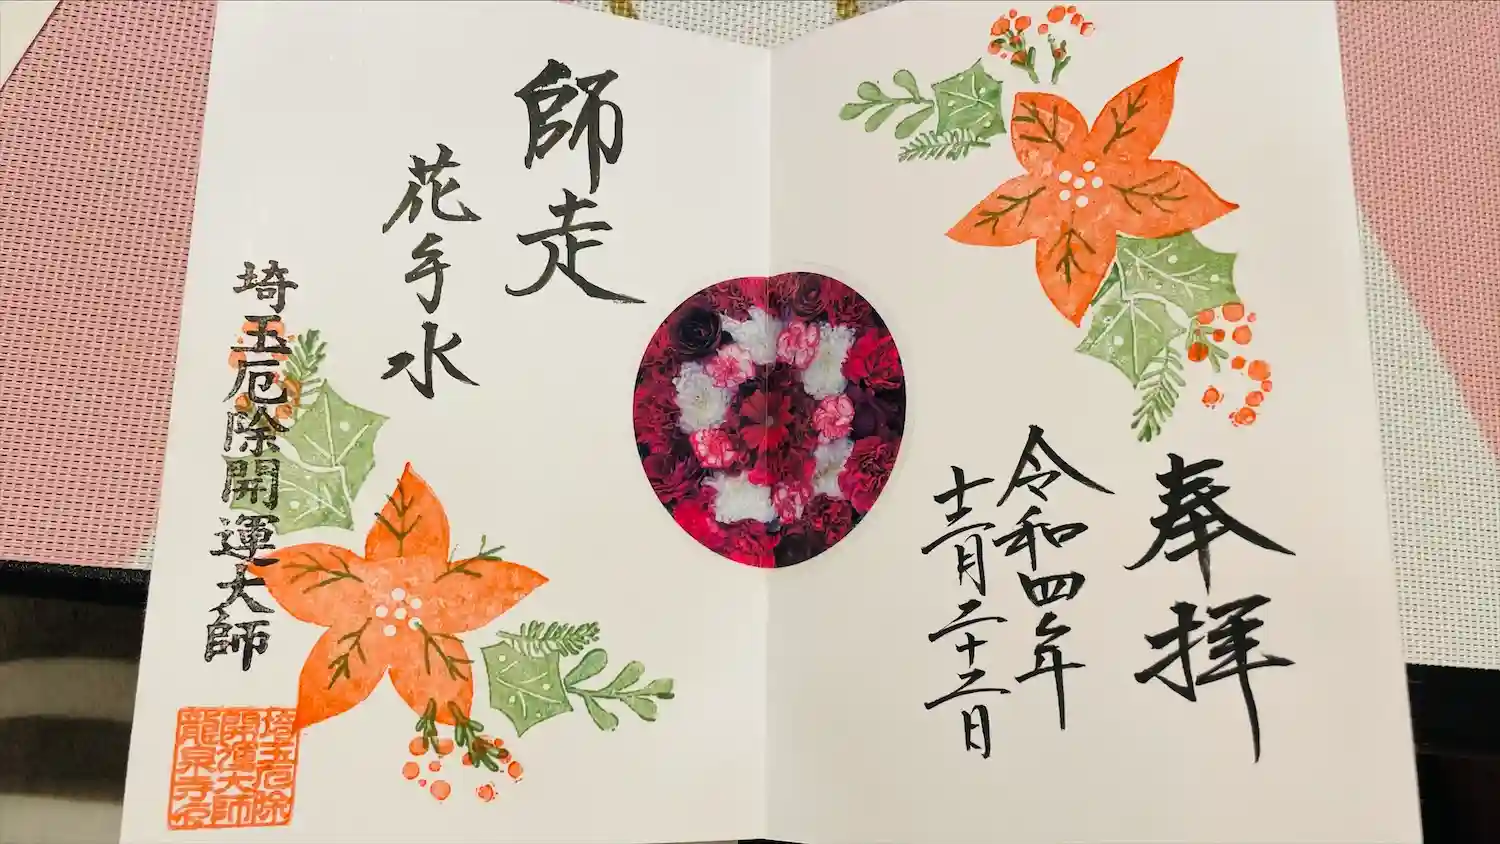 奉拝
令和四年
十二月二十二日
師走
花手水
埼玉厄除開運大師
埼玉厄除
開運大師
龍泉寺印